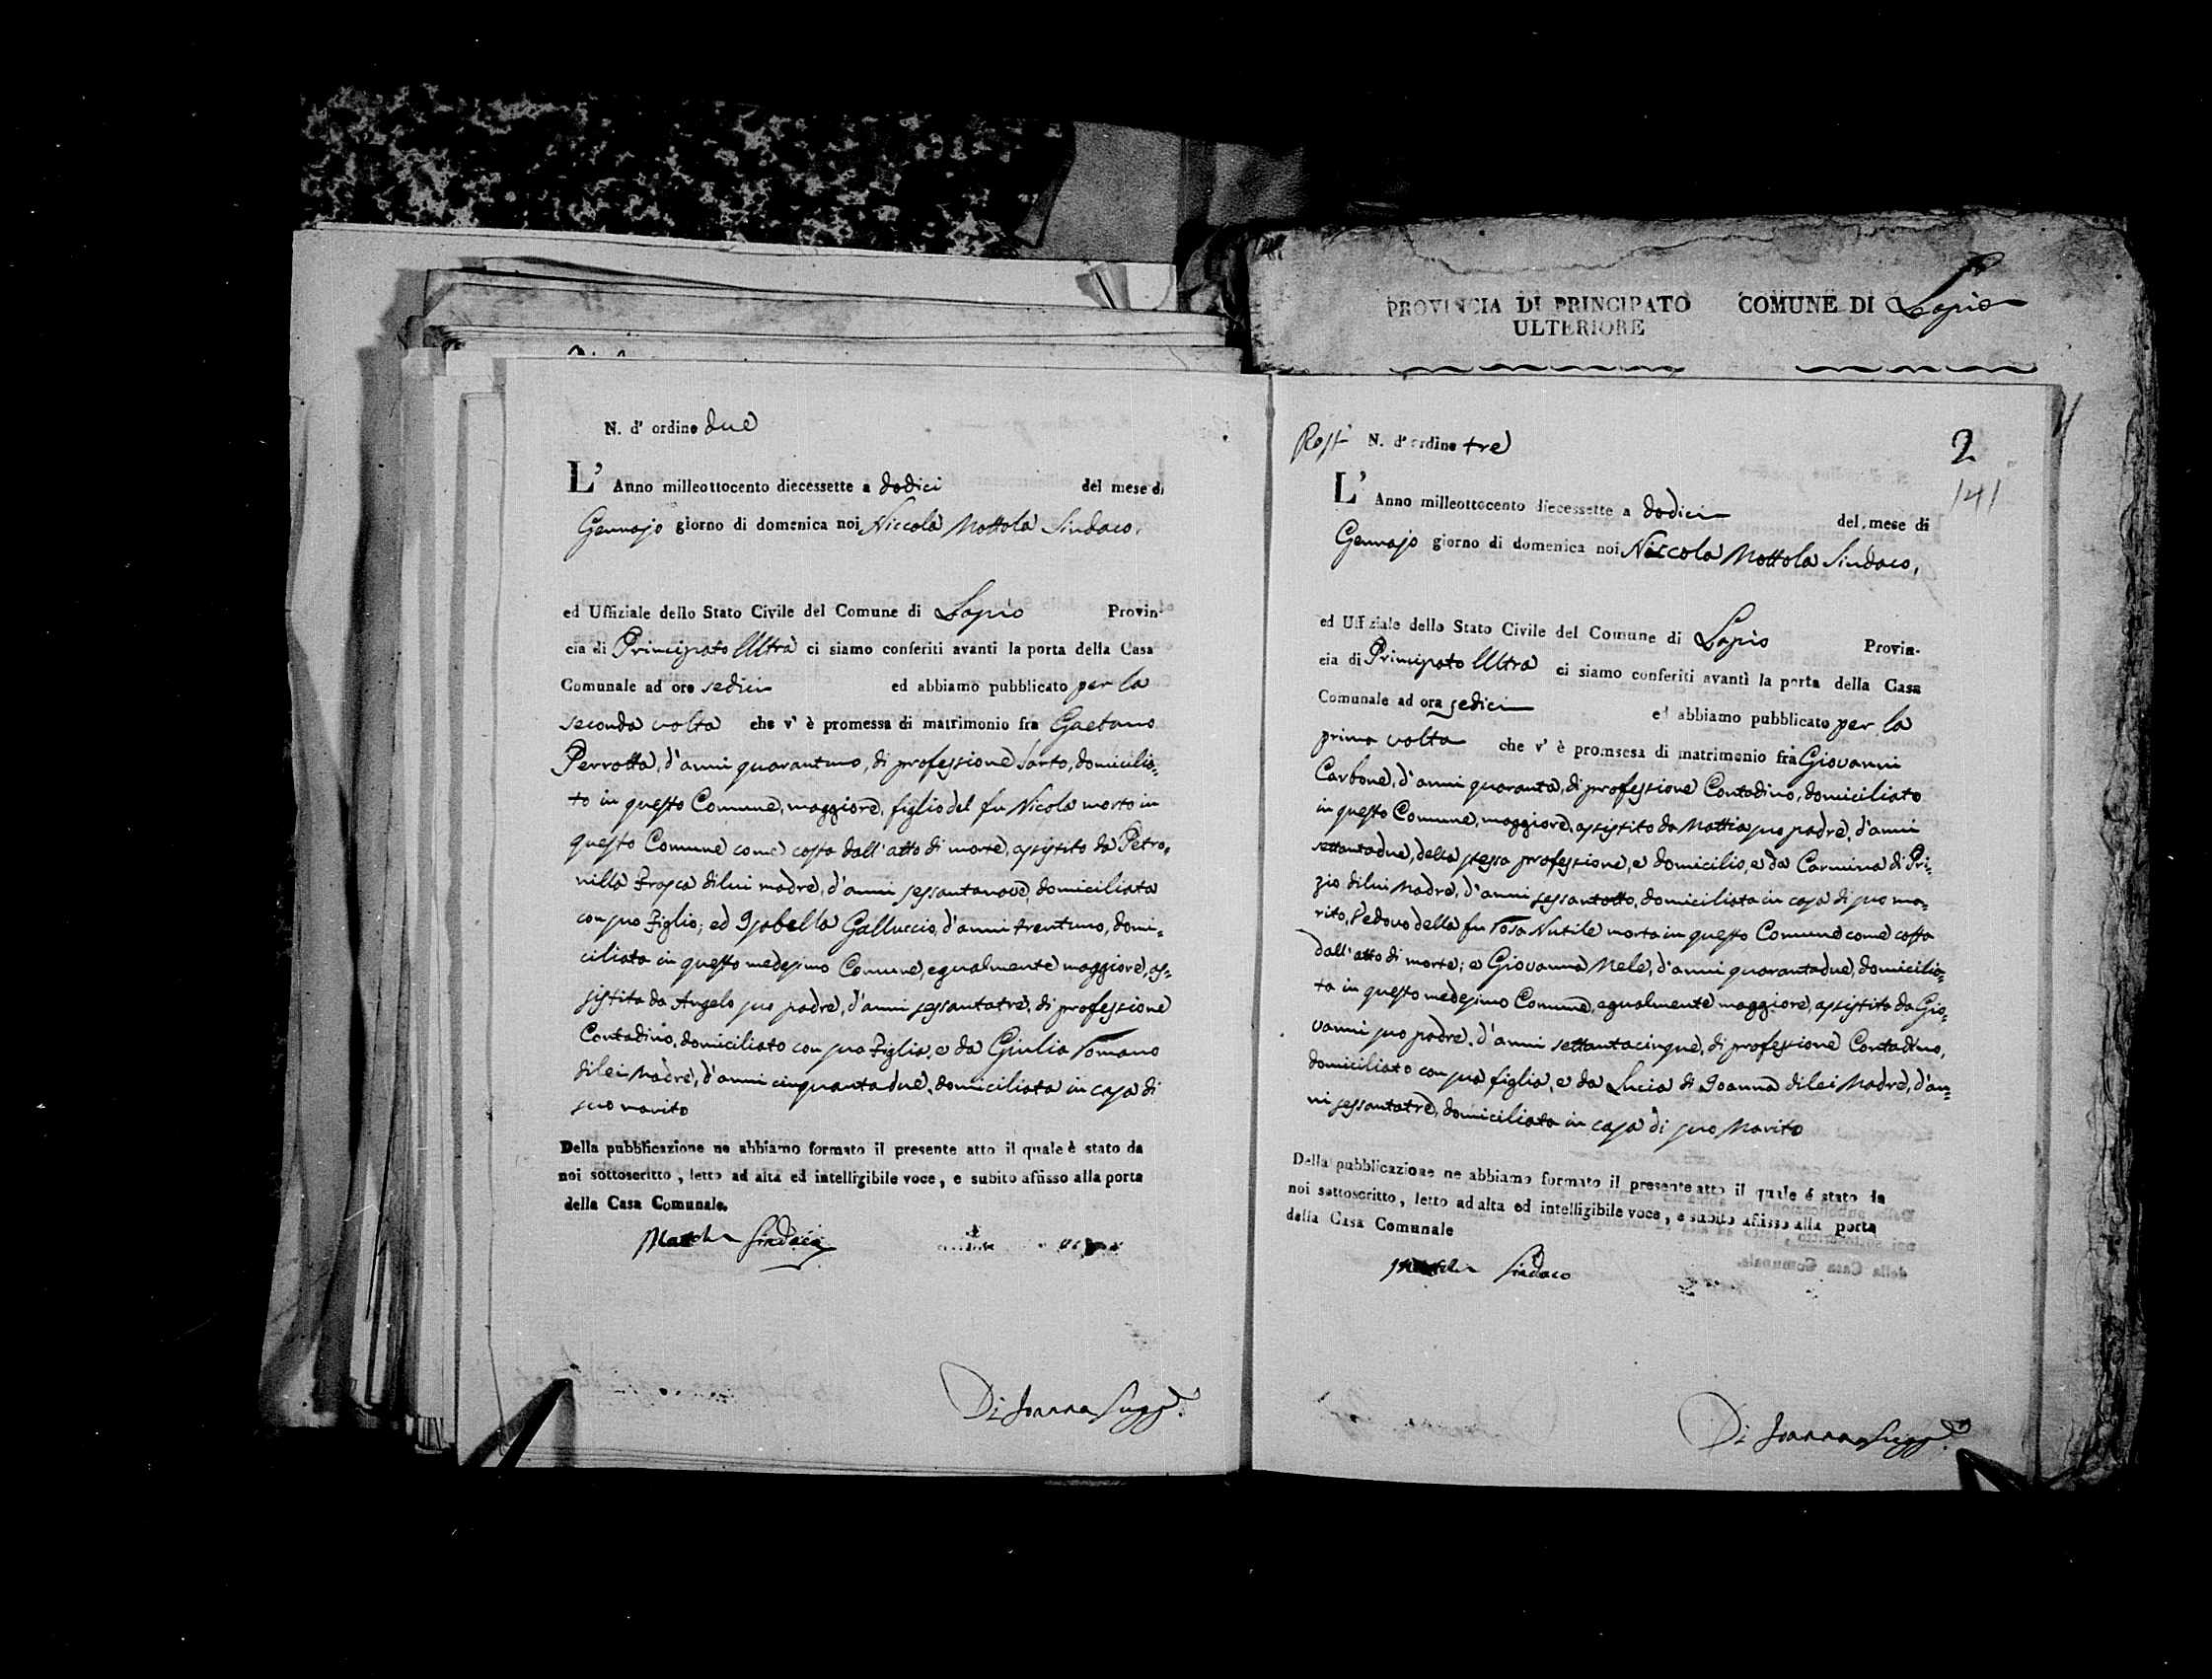 PROVINCIA DI PRINCIPATO
ULTERIORE
COMUNE DI Lapio
N. d' ordine due
L' Anno milleottocento diecessette a dodici del mese di
Gennajo giorno di domenica noi Niccola Mottola Sindaco,
ed Uffiziale dello Stato Civile del Comune di Lapio Provin-
cia di Principato Ultra ci siamo conferiti avanti la porta della Casa
Comunale ad ore sedici ed abbiamo pubblicato per la
seconda volta che v' è promessa di matrimonio fra Gaetano
Perrotta, d'anni quarantuno, di professione Sarto, domicilia-
to in questo Comune, maggiore, figlio del fu Nicola morto in
questo Comune come costa dall'atto di morte, assistito da Petro-
nilla Frasca di lui madre, d'anni sessantanove, domiciliata
con suo Figlio; ed Isabella Galluccio, d'anni trentuno, domi-
ciliata in questo medesimo Comune, egualmente maggiore, as-
sistita da Angelo suo padre, d'anni sessantatre, di professione
Contadino, domiciliato con sua Figlia, e da Giulia Romano
di lei Madre, d'anni cinquantadue, domiciliata in casa di
suo marito
Della pubblicazione ne abbiamo formato il presente atto il quale è stato da
noi sottoscritto, letto ad alta ed intelligibile voce, e subito affisso alla porta
della Casa Comunale.
Mottola Sindaco
Di Joanna
N. d' ordine tre
2
141
L' Anno milleottocento diecessette a dodici del mese di
Gennajo giorno di domenica noi Niccola Mottola Sindaco,
ed Uffiziale dello Stato Civile del Comune di Lapio Provin-
cia di Principato Ultra ci siamo conferiti avanti la porta della Casa
Comunale ad ora sedici ed abbiamo pubblicato per la
prima volta che v' è promsesa di matrimonio fra Giovanni
Carbone, d'anni quaranta, di professione Contadino, domiciliato
in questo Comune, maggiore, assistito da Mattia suo padre, d'anni
settantadue, della stessa professione, e domicilio, e da Carmina di Pri-
zio di lui Madre, d'anni sessantotto, domiciliata in casa di suo ma-
rito, Vedovo della fu Rosa Nutile morta in questo Comune come costa
dall'atto di morte; e Giovanna Mele, d'anni quarantadue, domicilia-
ta in questo medesimo Comune, egualmente maggiore, assistita da Gio-
vanni suo padre, d'anni settantacinque, di professione Contadino,
domiciliato con sua figlia, e da Lucia di Joanna di lei Madre, d'an-
ni sessantatre, domiciliata in casa di suo Marito
Della pubblicazione ne abbiamo formato il presente atto il quale é stato da
noi sottoscritto, letto ad alta ed intelligibile voce, e subito affisso alla porta
della Casa Comunale
Mottola Sindaco
Di Joanna